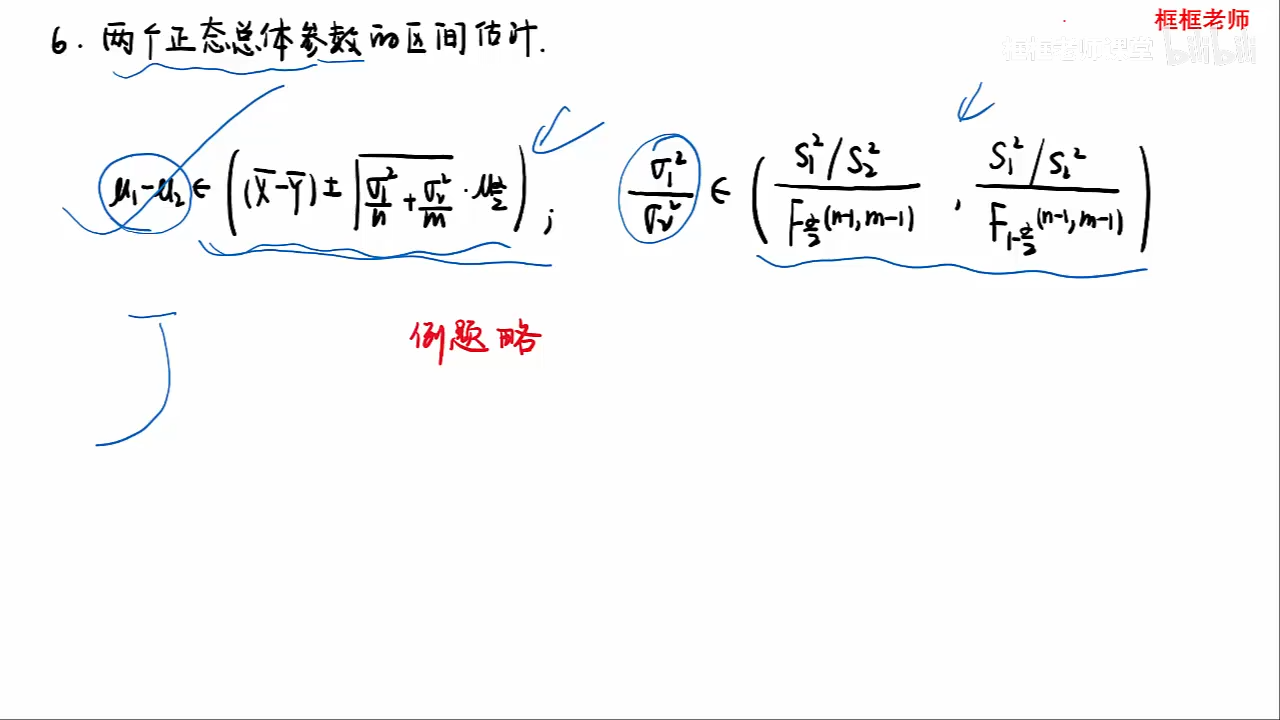 框框老师
框框老师课堂 bilibili
6. 两个正态总体参数的区间估计.
μ₁-μ₂ ∈ ( (X̄-Ȳ) ± √(σ₁²/n + σ₂²/m) · μ_{α/2} ) ; σ₁²/σ₂² ∈ ( (S₁²/S₂²)/(F_{α/2}(n-1, m-1)) , (S₁²/S₂²)/(F_{1-α/2}(n-1, m-1)) )
例题略